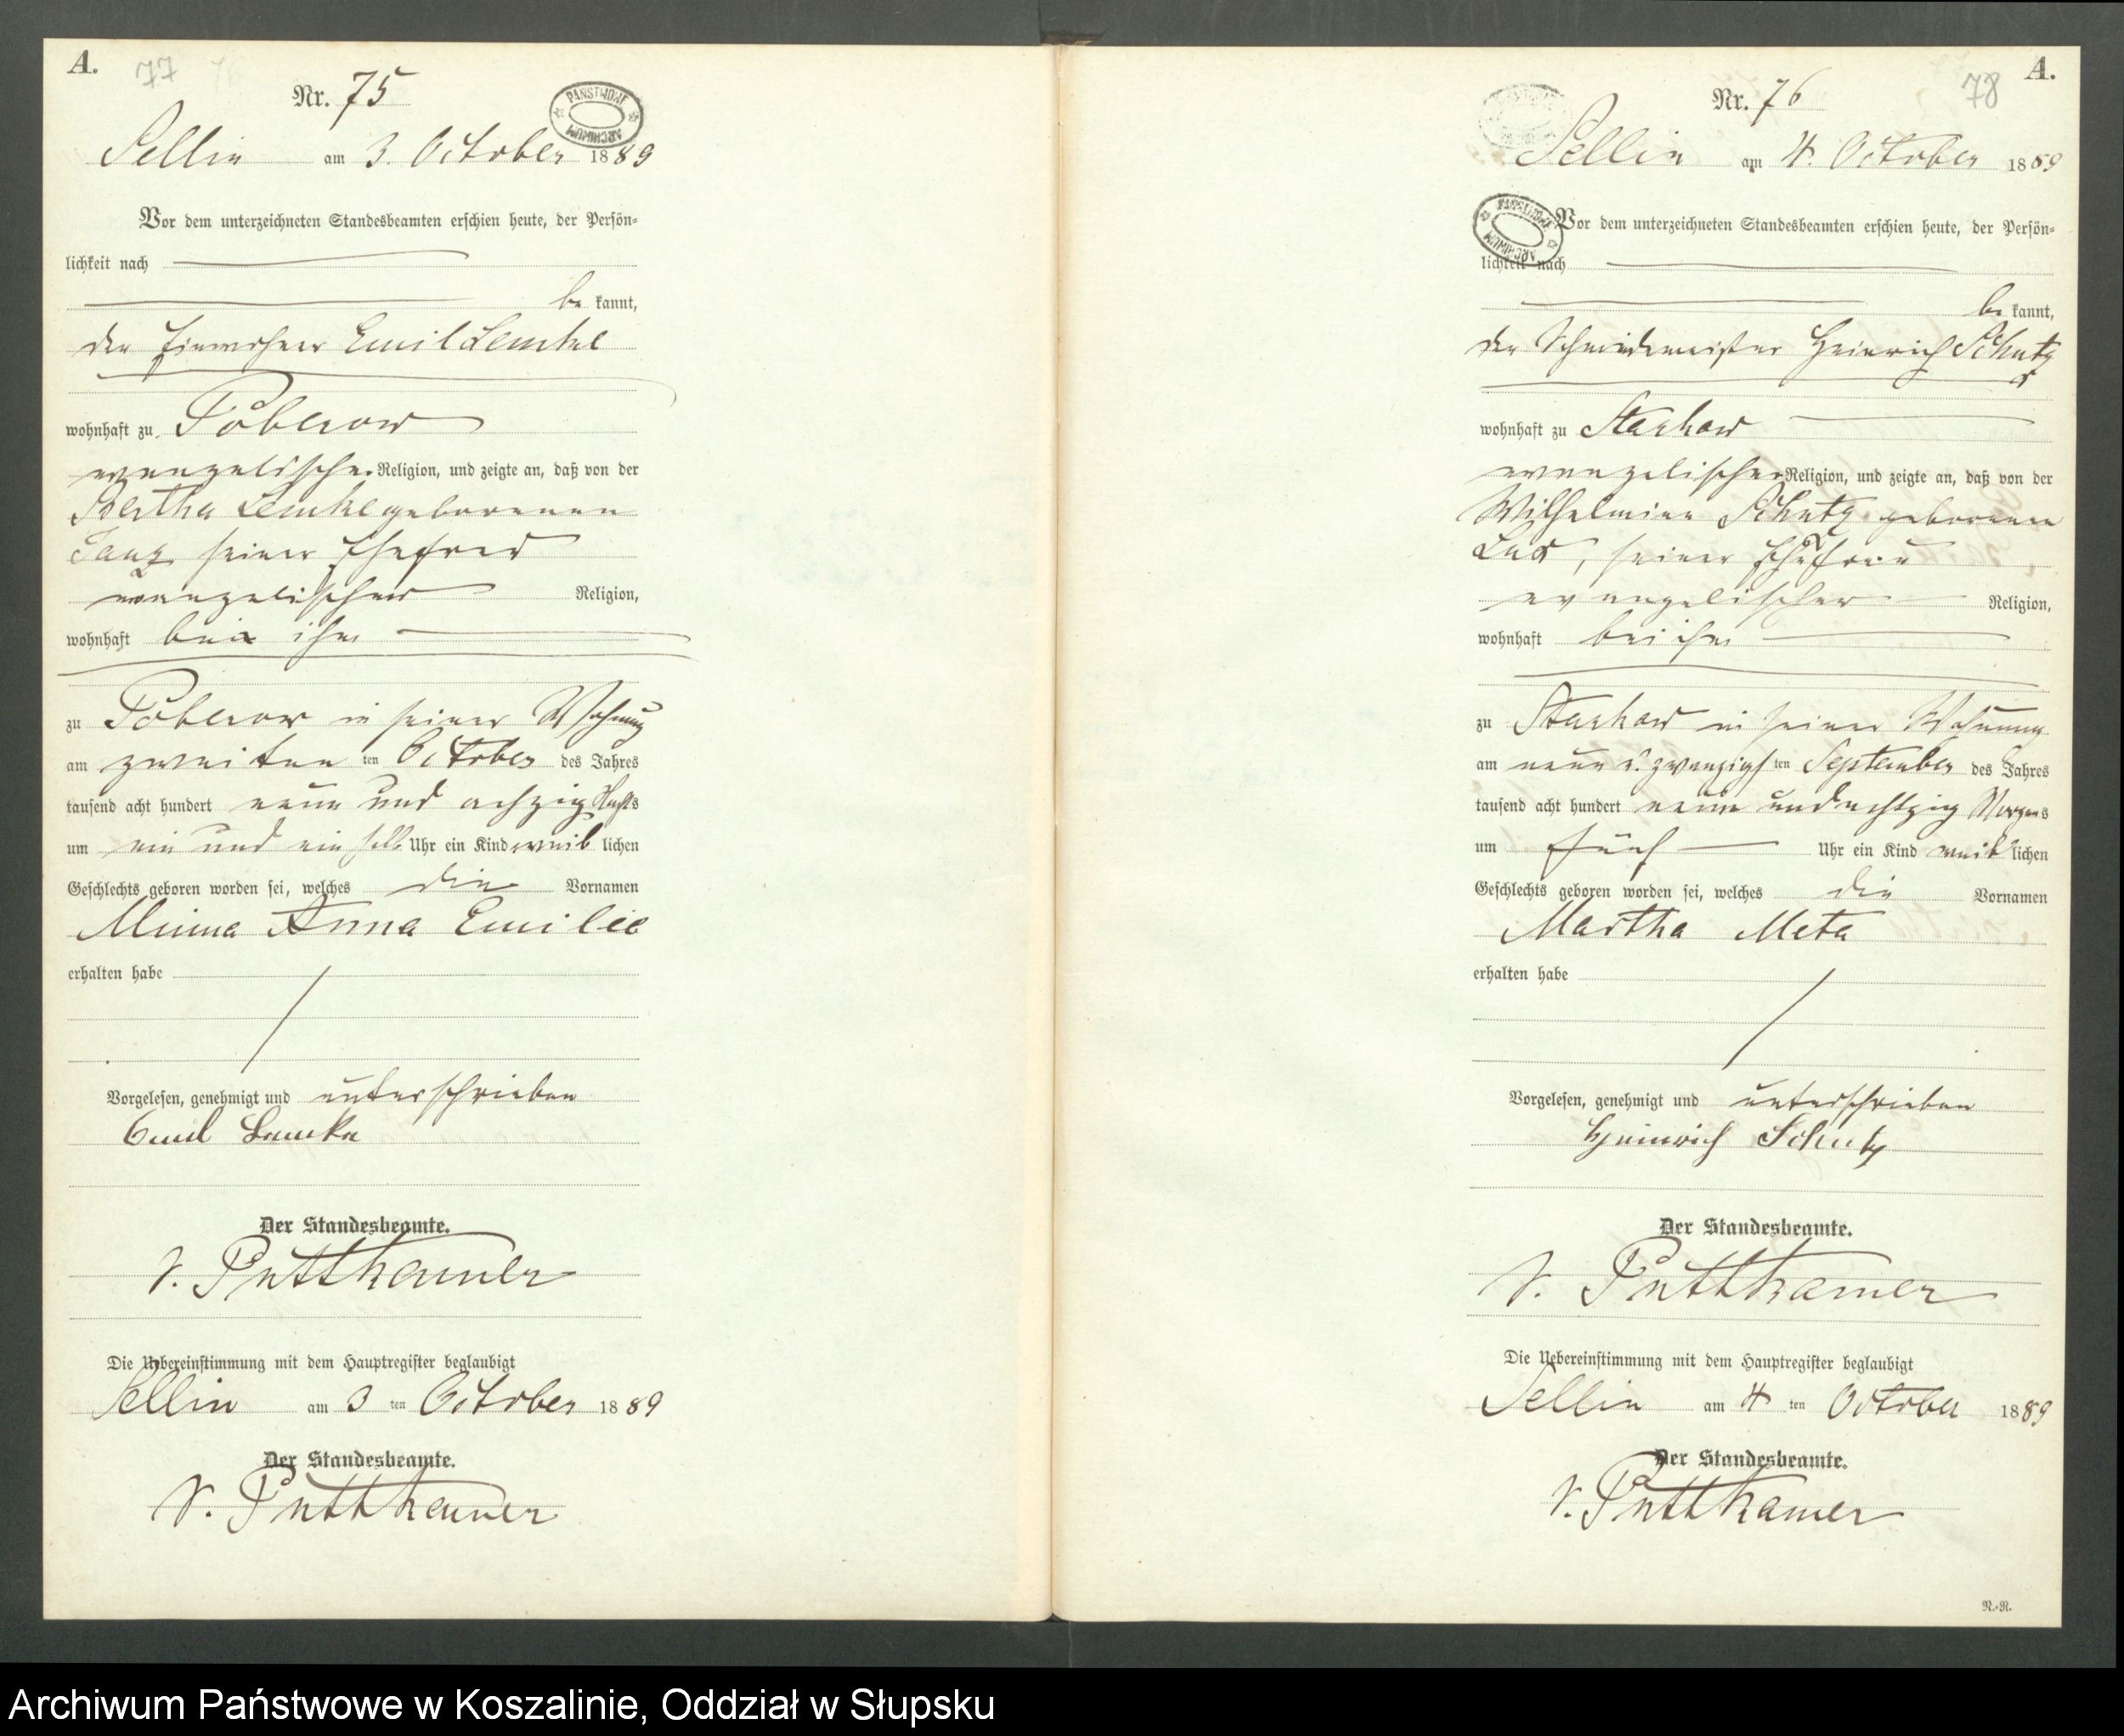 A.
77
Nr. 75
PAŃSTWOWE ARCHIWUM
Sellin am 3. October 1889
Vor dem unterzeichneten Standesbeamten erschien heute, der Persön=
lichkeit nach
be kannt,
der Einwohner Emil Lemke
wohnhaft zu Poberow
evangelischer Religion, und zeigte an, daß von der
Bertha Lemke geborenen
seiner Ehefrau
evangelischer Religion,
wohnhaft bei ihm
zu Poberow in seiner Wohnung
am zweiten ten October des Jahres
tausend acht hundert neun und achzig Nachts
um ein und ein halb Uhr ein Kind weib lichen
Geschlechts geboren worden sei, welches die Vornamen
Minna Anna Emilie
erhalten habe
Vorgelesen, genehmigt und unterschrieben
Emil Lemke
Der Standesbeamte.
v. Puttkamer
Die Uebereinstimmung mit dem Hauptregister beglaubigt
Sellin am 3 ten October 1889
Der Standesbeamte.
v. Puttkamer
A.
78
Nr. 76
Sellin am 4. October 1889
PAŃSTWOWE ARCHIWUM
Vor dem unterzeichneten Standesbeamten erschien heute, der Persön=
lichkeit nach
be kannt,
der Schmiedemeister Heinrich Schutz
wohnhaft zu Starkow
evangelischer Religion, und zeigte an, daß von der
Wilhelmine Schutz geborenen
seiner Ehefrau
evangelischer Religion,
wohnhaft bei ihm
zu Starkow in seiner Wohnung
am neun u. zwanzigs ten September des Jahres
tausend acht hundert neun und achtzig Morgens
um fünf Uhr ein Kind weib lichen
Geschlechts geboren worden sei, welches die Vornamen
Martha Meta
erhalten habe
Vorgelesen, genehmigt und unterschrieben
Heinrich Schutz
Der Standesbeamte.
v. Puttkamer
Die Uebereinstimmung mit dem Hauptregister beglaubigt
Sellin am 4 ten October 1889
Der Standesbeamte.
v. Puttkamer
R.-R.
Archiwum Państwowe w Koszalinie, Oddział w Słupsku